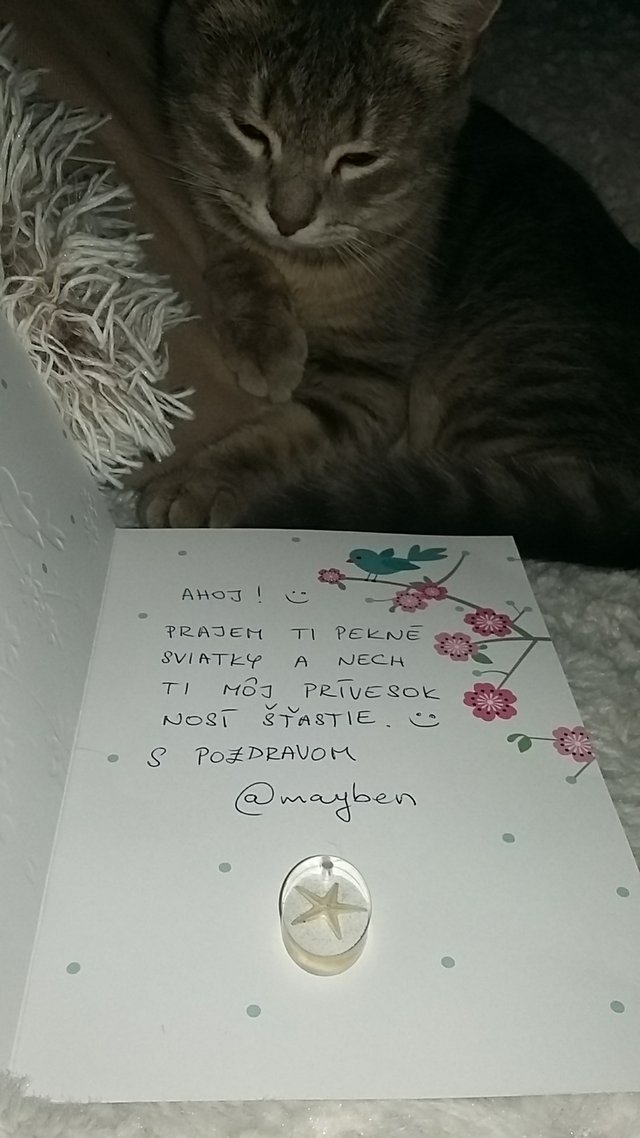 AHOJ! :)
PRAJEM TI PEKNÉ
SVIATKY A NECH
TI MÔJ PRÍVESOK
NOSÍ ŠŤASTIE. :)
S POZDRAVOM
@mayben